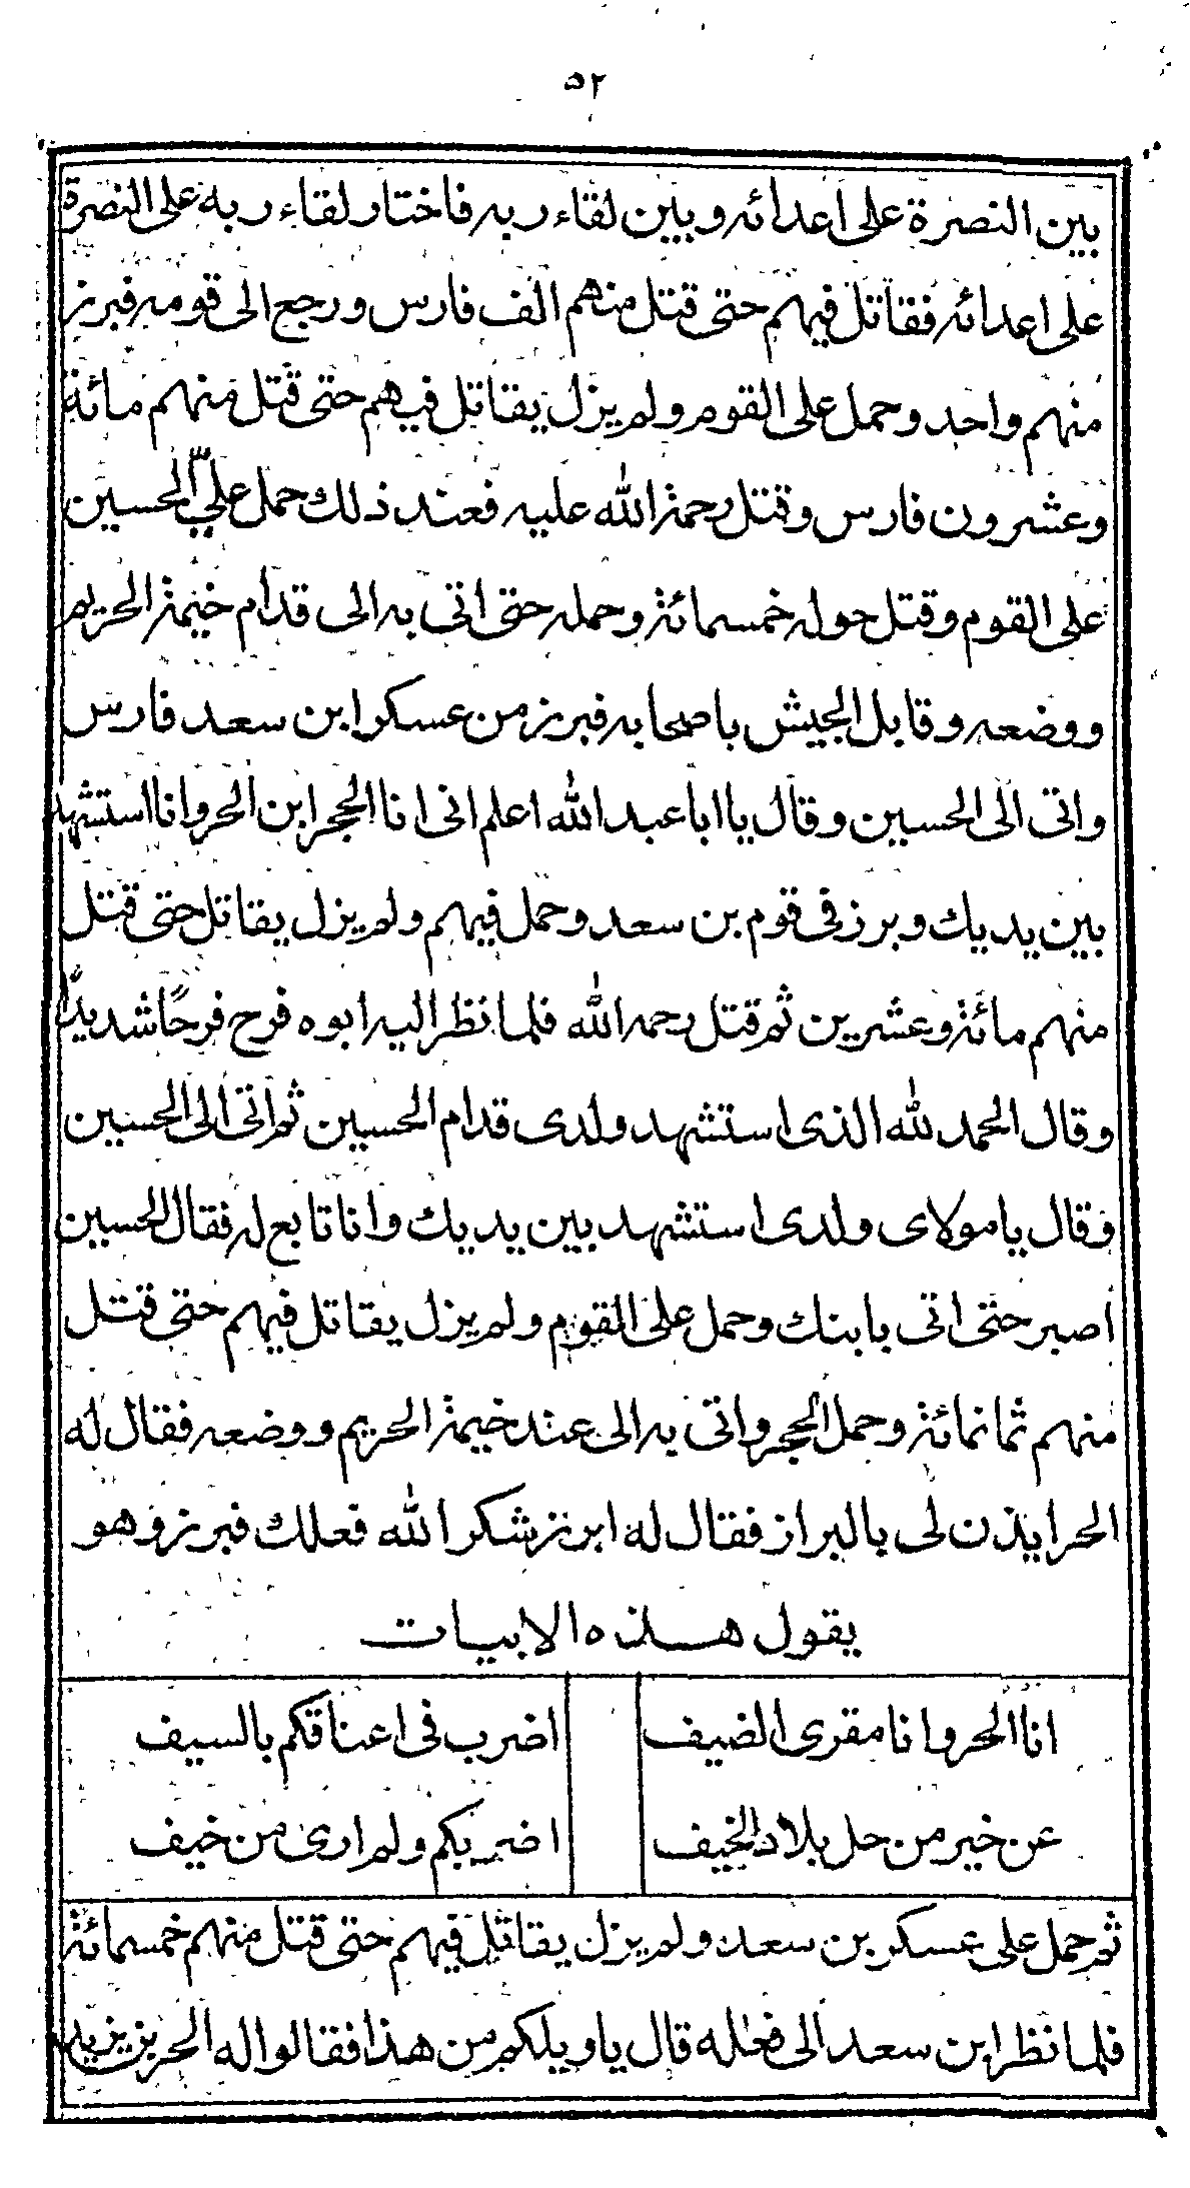 ٥٢
بين النصرة على اعدائه وبين لقاء ربه فاختار لقاء ربه على النصرة
على اعدائه فقاتل فيهم حتى قتل منهم الف فارس ورجع الى قومه فبرز
منهم واحد وحمل على القوم ولم يزل يقاتل فيهم حتى قتل منهم مائة
وعشرون فارس وقتل رحمة الله عليه فعند ذلك حمل علي الحسين
على القوم وقتل حوله خمسمائة وحمله حتى اتى به الى قدام خيمة الحريم
ووضعه وقابل الجيش باصحابه فبرز من عسكر ابن سعد فارس
واتى الى الحسين وقال يا ابا عبد الله اعلم انى انا الحجر ابن الحر وانا استشهد
بين يديك وبرز فى قوم بن سعد وحمل فيهم ولم يزل يقاتل حتى قتل
منهم مائة وعشرين ثم قتل رحمه الله فلما نظر اليه ابوه فرح فرحًا شديدًا
وقال الحمد لله الذى استشهد ولدى قدام الحسين ثم اتى الى الحسين
وقال يا مولاى ولدى استشهد بين يديك وانا تابع له فقال الحسين
اصبر حتى اتى بابنك وحمل على القوم ولم يزل يقاتل فيهم حتى قتل
منهم ثمانمائة وحمل الحجر واتى به الى عند خيمة الحريم ووضعه فقال له
الحر ايذن لى بالبراز فقال له ابرز شكر الله فعلك فبرز وهو
يقول هذه الابيات
انا الحر وانا مقرى الضيف اضرب فى اعناقكم بالسيف
عن خير من حل بلاد الخيف اضربكم ولم ارى من خيف
ثم حمل على عسكر بن سعد ولم يزل يقاتل فيهم حتى قتل منهم خمسمائة
فلما نظر ابن سعد الى فعله قال يا ويلكم من هذا فقالوا له الحر بن يزيد